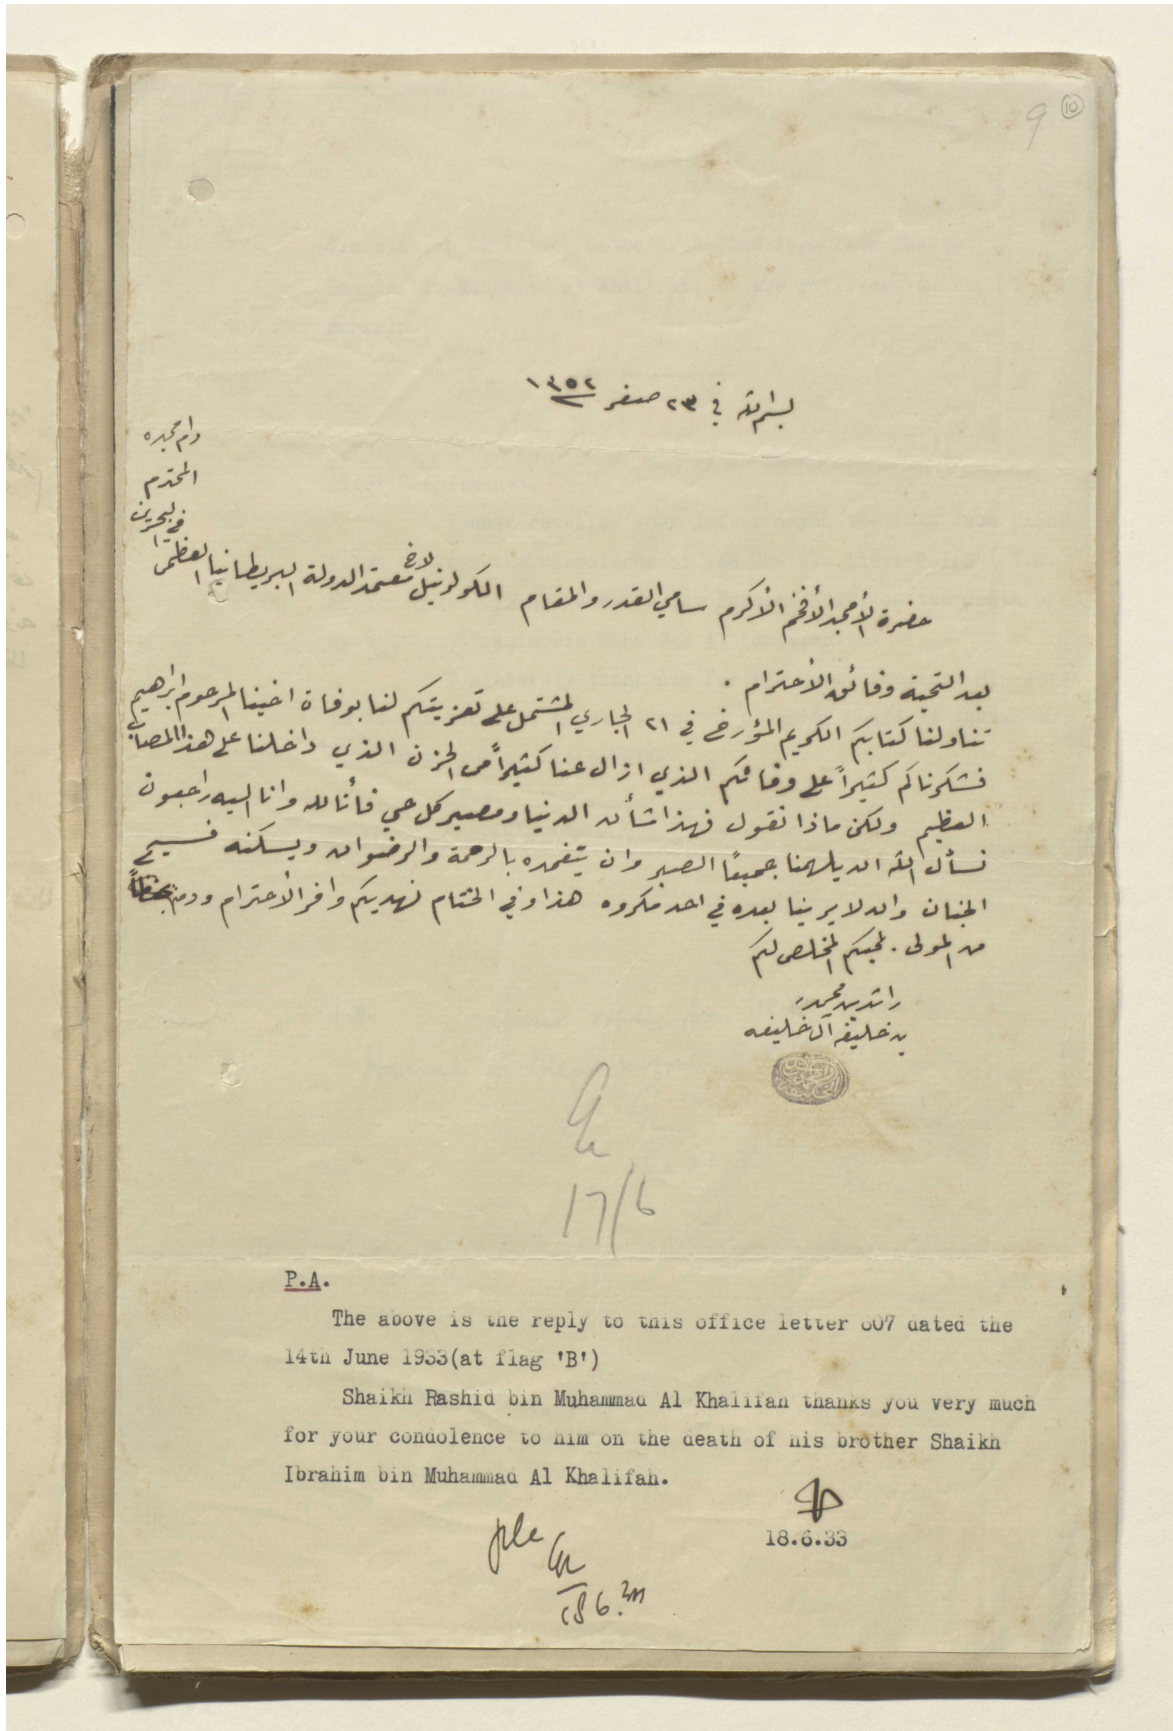 9 10
بسم الله في ٢٣ صفر ١٣٥٢
حضرة الأمجد الأفخم الأكرم سامي القدر والمقام الكولونيل لاخ معتمد الدولة البريطانيا العظمى
في البحرين
المحترم
دام مجده
بعد التحية وفائق الأحترام .
تناولنا كتابكم الكريم المؤرخ في ٢١ الجاري المشتمل على تعزيتكم لنا بوفاة اخينا المرحوم ابراهيم
فشكرناكم كثيراً على وفائكم الذي ازال عنا كثيراً من الحزن الذي داخلنا على هذا المصاب
العظيم ولكن ماذا نقول فهذا شأن الدنيا ومصير كل حي فأنا لله وانا اليه راجعون
نسأل الله ان يلهمنا جميعًا الصبر وان يتغمده بالرحمة والرضوان ويسكنه فسيح
الجنان وان لا يرينا بعده في احد مكروه هذا وفي الختام نهديكم وافر الأحترام ودمتم
من المولى . محبكم المخلص لكم
راشد بن محمد
بن خليفه آل خليفه
17/6
P.A.
The above is the reply to this office letter 807 dated the
14th June 1933(at flag 'B')
Shaikh Rashid bin Muhammad Al Khalifah thanks you very much
for your condolence to him on the death of his brother Shaikh
Ibrahim bin Muhammad Al Khalifah.
18.6.33
file
18 6.33